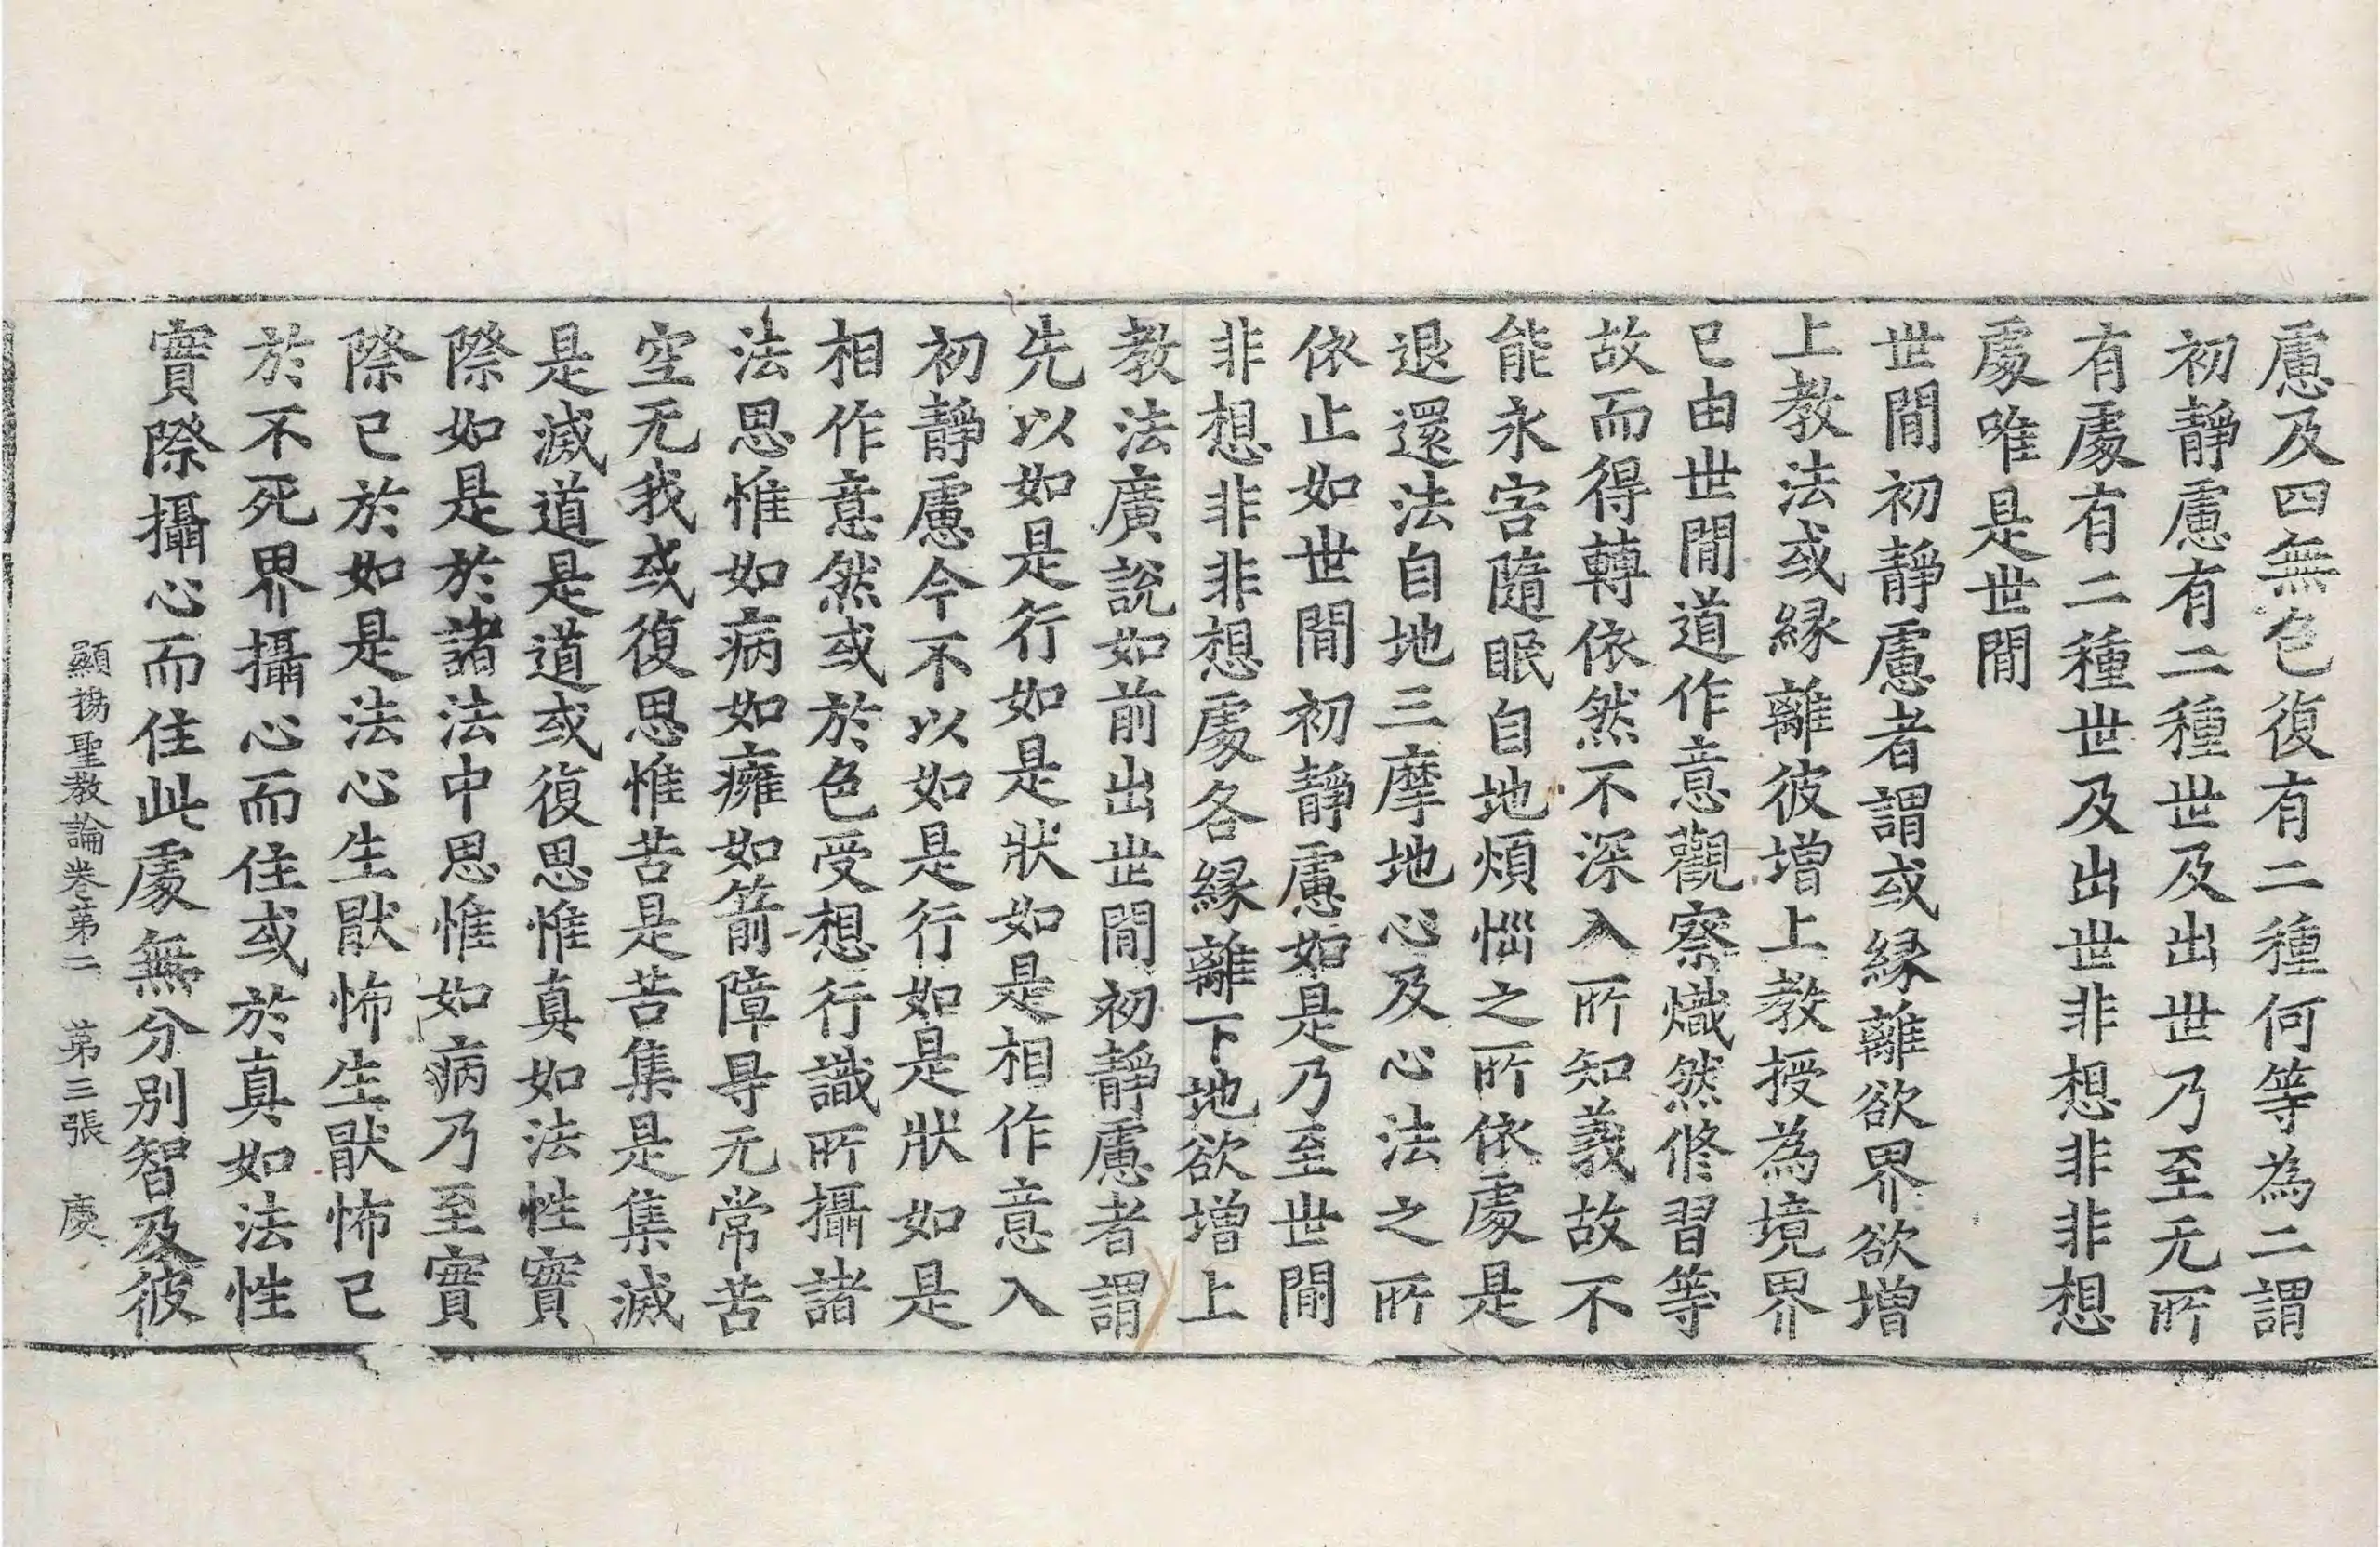 慮及四無色復有二種何等為二謂
初靜慮有二種世及出世乃至无所
有處有二種世及出世非想非非想
處唯是世間
世間初靜慮者謂或緣離欲界欲增
上教法或緣離彼增上教授為境界
已由世間道作意觀察熾然修習等
故而得轉依然不深入所知義故不
能永害隨眠自地煩惱之所依處是
退還法自地三摩地心及心法之所
依止如世間初靜慮如是乃至世間
非想非非想處各緣離下地欲增上
教法廣說如前出世間初靜慮者謂
先以如是行如是狀如是相作意入
初靜慮今不以如是行如是狀如是
相作意然或於色受想行識所攝諸
法思惟如病如癰如箭障㝵无常苦
空无我或復思惟苦是苦集是集滅
是滅道是道或復思惟真如法性實
際如是於諸法中思惟如病乃至實
際已於如是法心生猒怖生猒怖已
於不死界攝心而住或於真如法性
實際攝心而住此處無分別智及彼
顯揚聖教論卷第二　第三張　虔